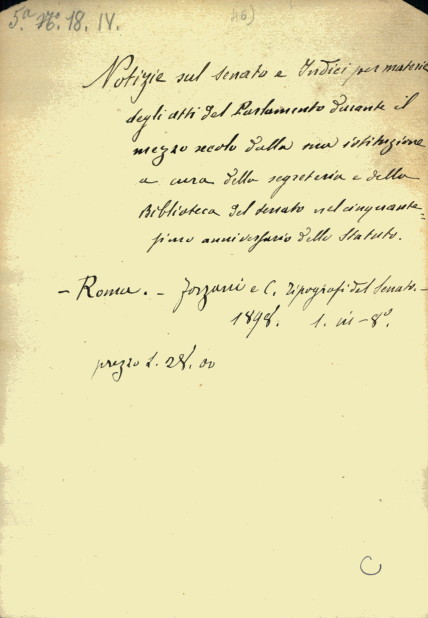 5.ª N.º 18. IV.
46)
Notizie sul Senato e Indici per materie
degli atti del Parlamento durante il
mezzo secolo dalla sua istituzione
a cura della segreteria e della
Biblioteca del Senato nel cinquante-
simo anniversario dello Statuto.
- Roma. - Forzani e C. Tipografi del Senato. -
1898. 1. in-8º.
prezzo L. 28. 00
C